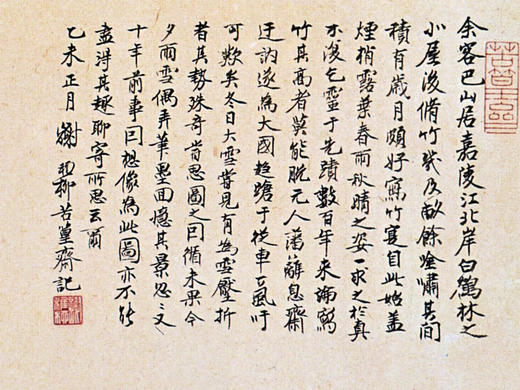 余客巴山居嘉陵江北岸白鶴林之
小屋後脩竹幾及畝餘吟嘯其間
積有歲月頗好寫竹寔自此始蓋
煙梢露葉春雨秋晴之姿一求之於真
不復乞靈于先蹟數百年来論寫
竹其高者莫能脫元人藩籬息齋
迂訥遂為大國趨蹌于後車之風吁
可歎矣冬日大雪嘗見有為雪壓折
者其勢殊奇嘗思圖之因循未果今
夕雨雪偶弄筆墨回憶其景忽忽又
十年前事回想像為此圖亦不能
盡得其趣聊寄所思云爾
乙未正月謝稚柳苦篁齋記